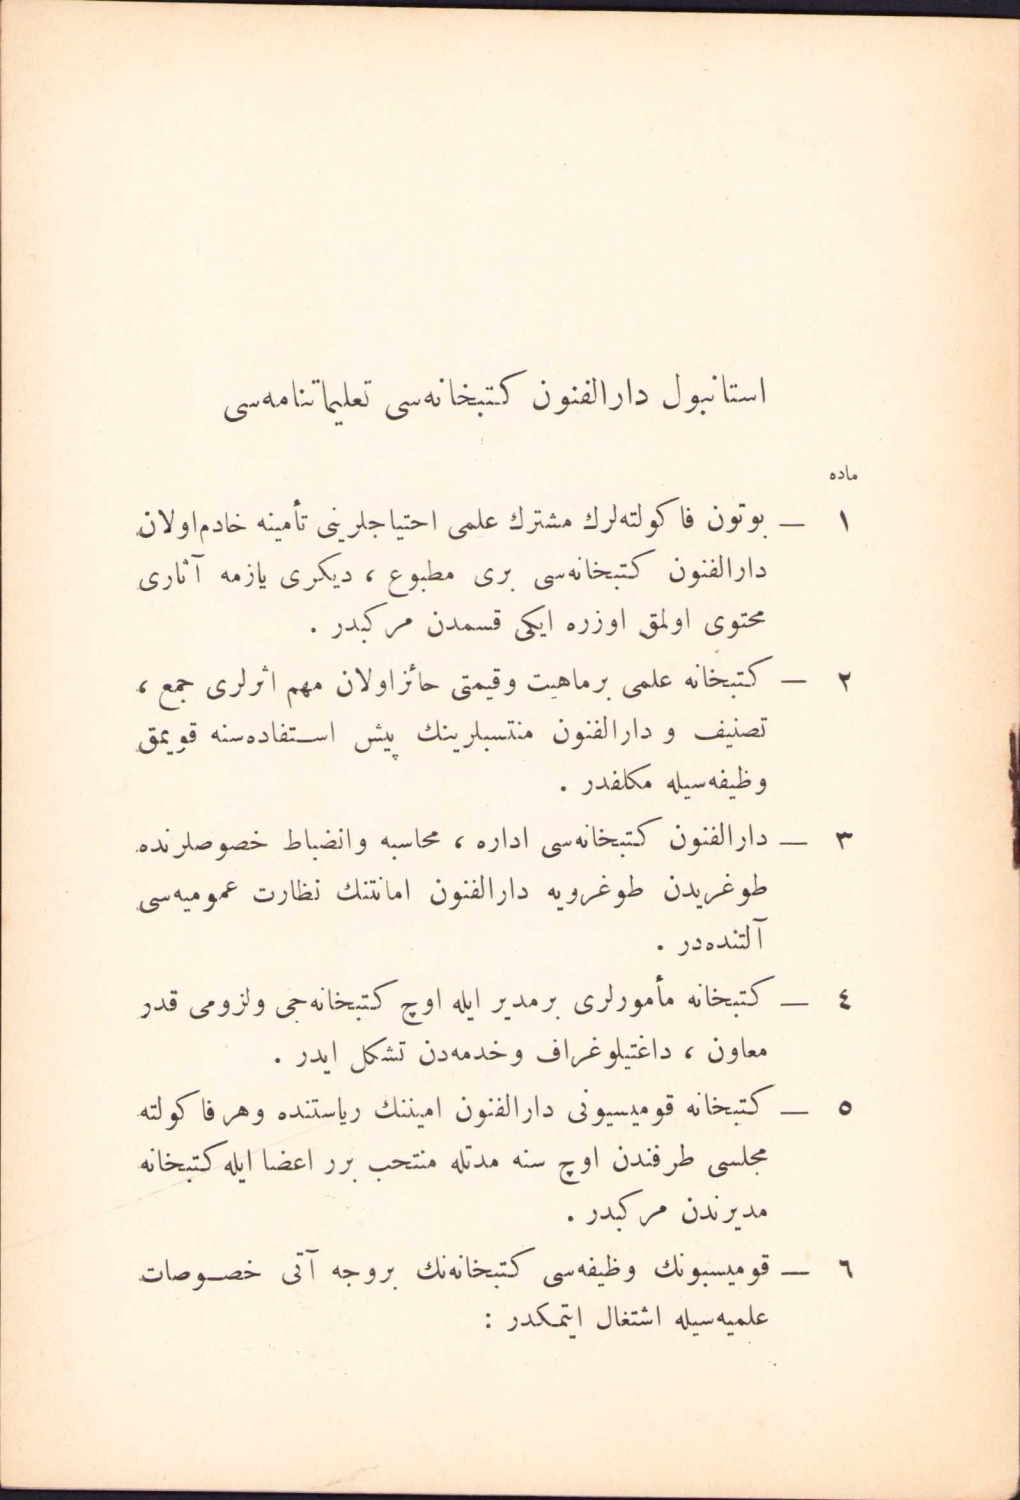 استانبول دارالفنون كتبخانه‌سی تعلیماتنامه‌سی
ماده
١ — بوتون فاكولته‌لرك مشترك علمی احتیاجلرینی تأمینه خادم اولان
دارالفنون كتبخانه‌سی بری مطبوع ، دیكری یازمه آثاری
محتوی اولمق اوزره ایكی قسمدن مركبدر .
٢ — كتبخانه علمی بر ماهیت وقیمتی حائز اولان مهم اثرلری جمع ،
تصنیف و دارالفنون منتسبلرینك پیش استفاده‌سنه قویمق
وظیفه‌سیله مكلفدر .
٣ — دارالفنون كتبخانه‌سی اداره ، محاسبه وانضباط خصوصلرنده
طوغریدن طوغرویه دارالفنون امانتنك نظارت عمومیه‌سی
آلتنده‌در .
٤ — كتبخانه مأمورلری بر مدیر ایله اوچ كتبخانه‌جی ولزومی قدر
معاون ، داغتیلوغراف وخدمه‌دن تشكل ایدر .
٥ — كتبخانه قومیسیونی دارالفنون امیننك ریاستنده وهر فاكولته
مجلسی طرفندن اوچ سنه مدتله منتحب برر اعضا ایله كتبخانه
مدیرندن مركبدر .
٦ — قومیسیونك وظیفه‌سی كتبخانه‌نك بروجه آتی خصوصات
علمیه‌سیله اشتغال ایتمكدر :